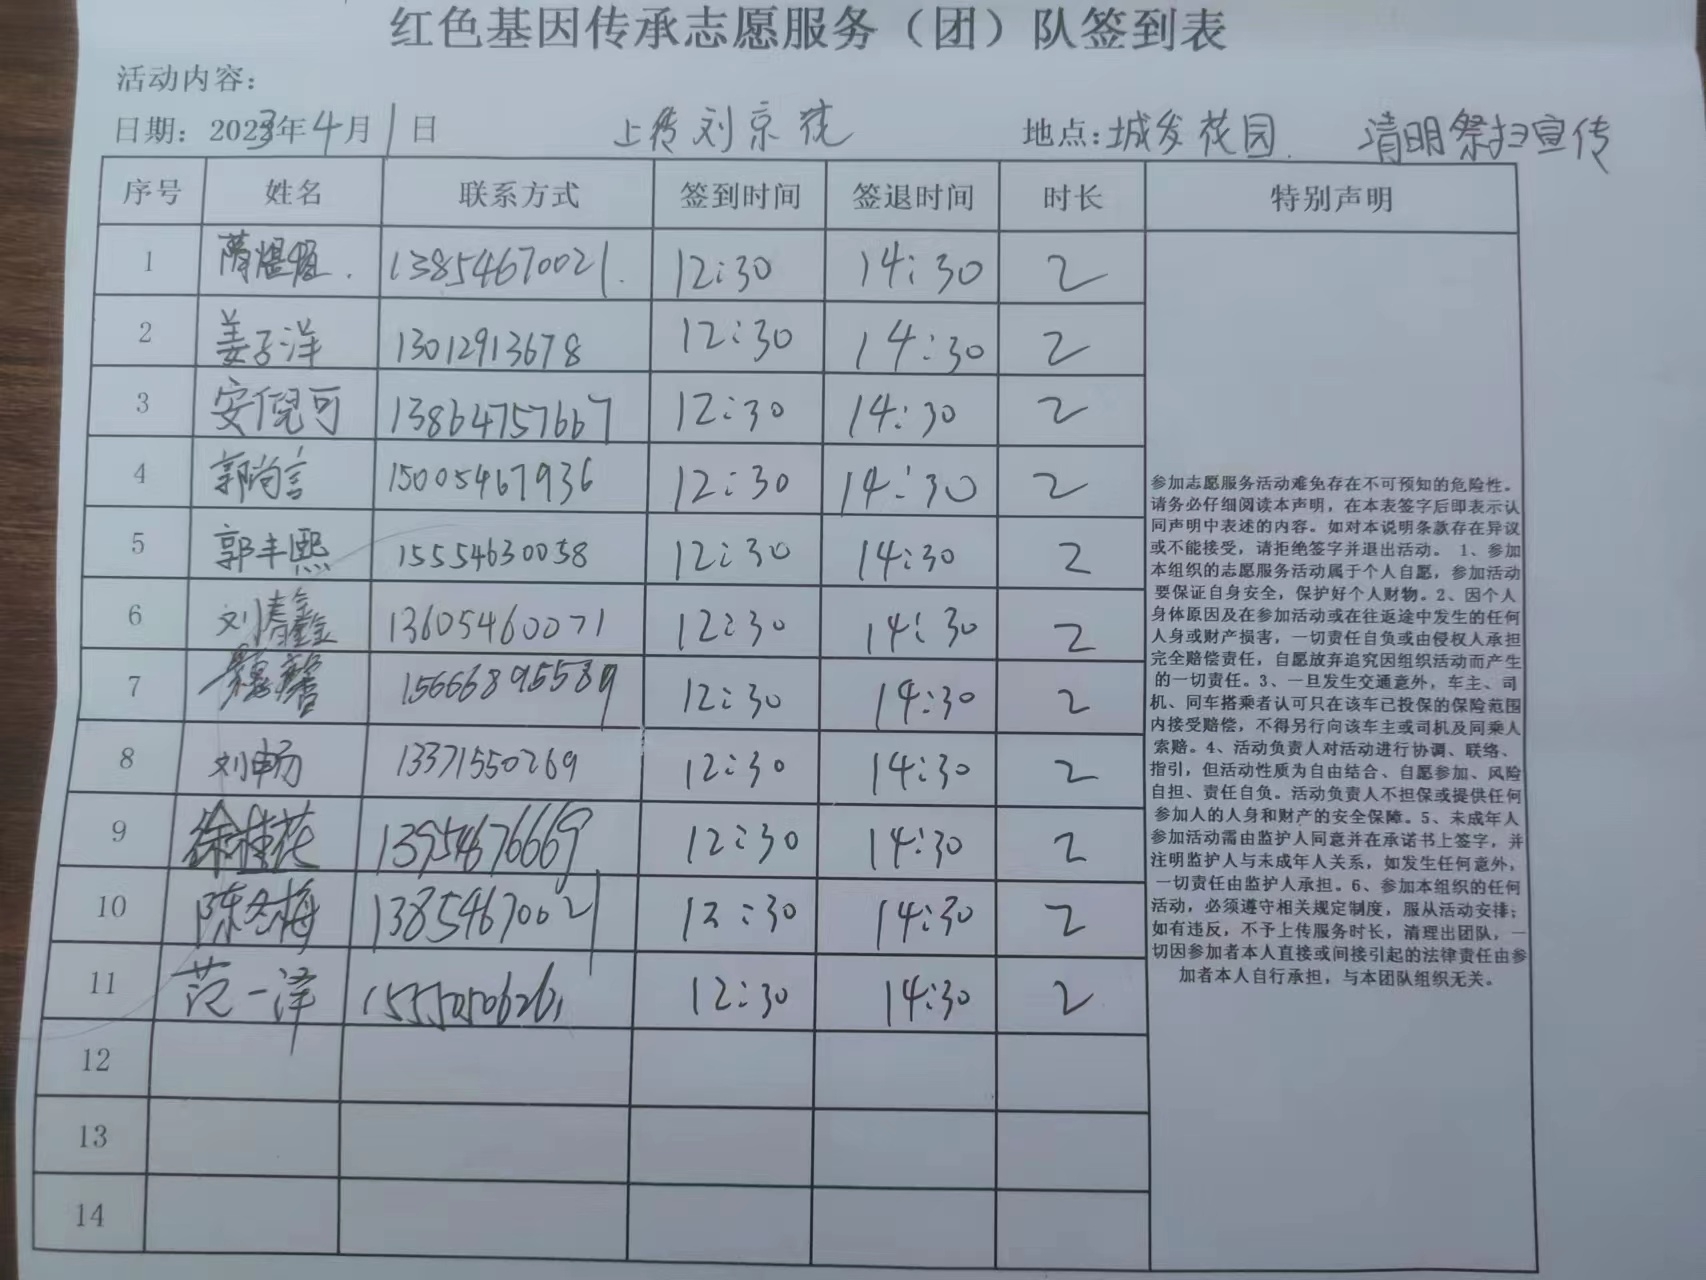 红色基因传承志愿服务（团）队签到表
活动内容：
日期：2023年4月1日 上传刘京花 地点：城发花园 清明祭扫宣传
序号 姓名 联系方式 签到时间 签退时间 时长 特别声明
1 13854670021. 12:30 14:30 2
2 姜子洋 13012913678 12:30 14:30 2
3 安倪可 13864757667 12:30 14:30 2
4 郭尚言 15005467936 12:30 14:30 2
5 郭丰熙 15554630058 12:30 14:30 2
6 刘春鑫 13605460071 12:30 14:30 2
7 15666895589 12:30 14:30 2
8 刘畅 13371550269 12:30 14:30 2
9 徐桂花 13954676669 12:30 14:30 2
10 陈冬梅 13854670021 12:30 14:30 2
11 范一泽 15550506261 12:30 14:30 2
12
13
14
参加志愿服务活动难免存在不可预知的危险性。
请务必仔细阅读本声明，在本表签字后即表示认
同声明中表述的内容。如对本说明条款存在异议
或不能接受，请拒绝签字并退出活动。 1、参加
本组织的志愿服务活动属于个人自愿，参加活动
要保证自身安全，保护好个人财物。2、因个人
身体原因及在参加活动或在往返途中发生的任何
人身或财产损害，一切责任自负或由侵权人承担
完全赔偿责任，自愿放弃追究因组织活动而产生
的一切责任。3、一旦发生交通意外，车主、司
机、同车搭乘者认可只在该车已投保的保险范围
内接受赔偿，不得另行向该车主或司机及同乘人
索赔。4、活动负责人对活动进行协调、联络、
指引，但活动性质为自由结合、自愿参加、风险
自担、责任自负。活动负责人不担保或提供任何
参加人的人身和财产的安全保障。5、未成年人
参加活动需由监护人同意并在承诺书上签字，并
注明监护人与未成年人关系，如发生任何意外，
一切责任由监护人承担。6、参加本组织的任何
活动，必须遵守相关规定制度，服从活动安排；
如有违反，不予上传服务时长，清理出团队，一
切因参加者本人直接或间接引起的法律责任由参
加者本人自行承担，与本团队组织无关。